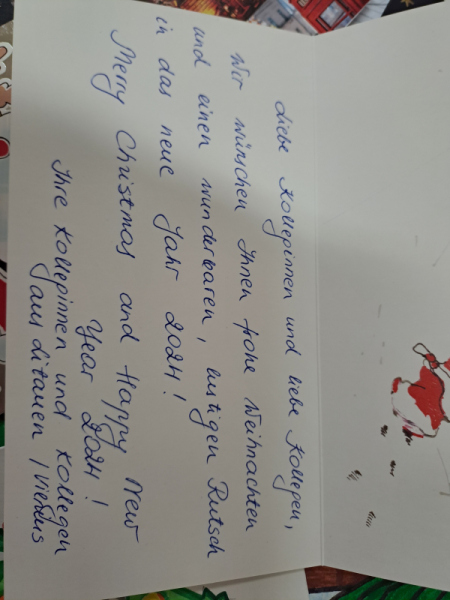 Liebe Kolleginnen und liebe Kollegen,
Wir wünschen Ihnen frohe Weihnachten
und einen wunderbaren, lustigen Rutsch
in das neue Jahr 2024!
Merry Christmas and Happy New
Year 2024!
Ihre Kolleginnen und Kollegen
aus Litauen,